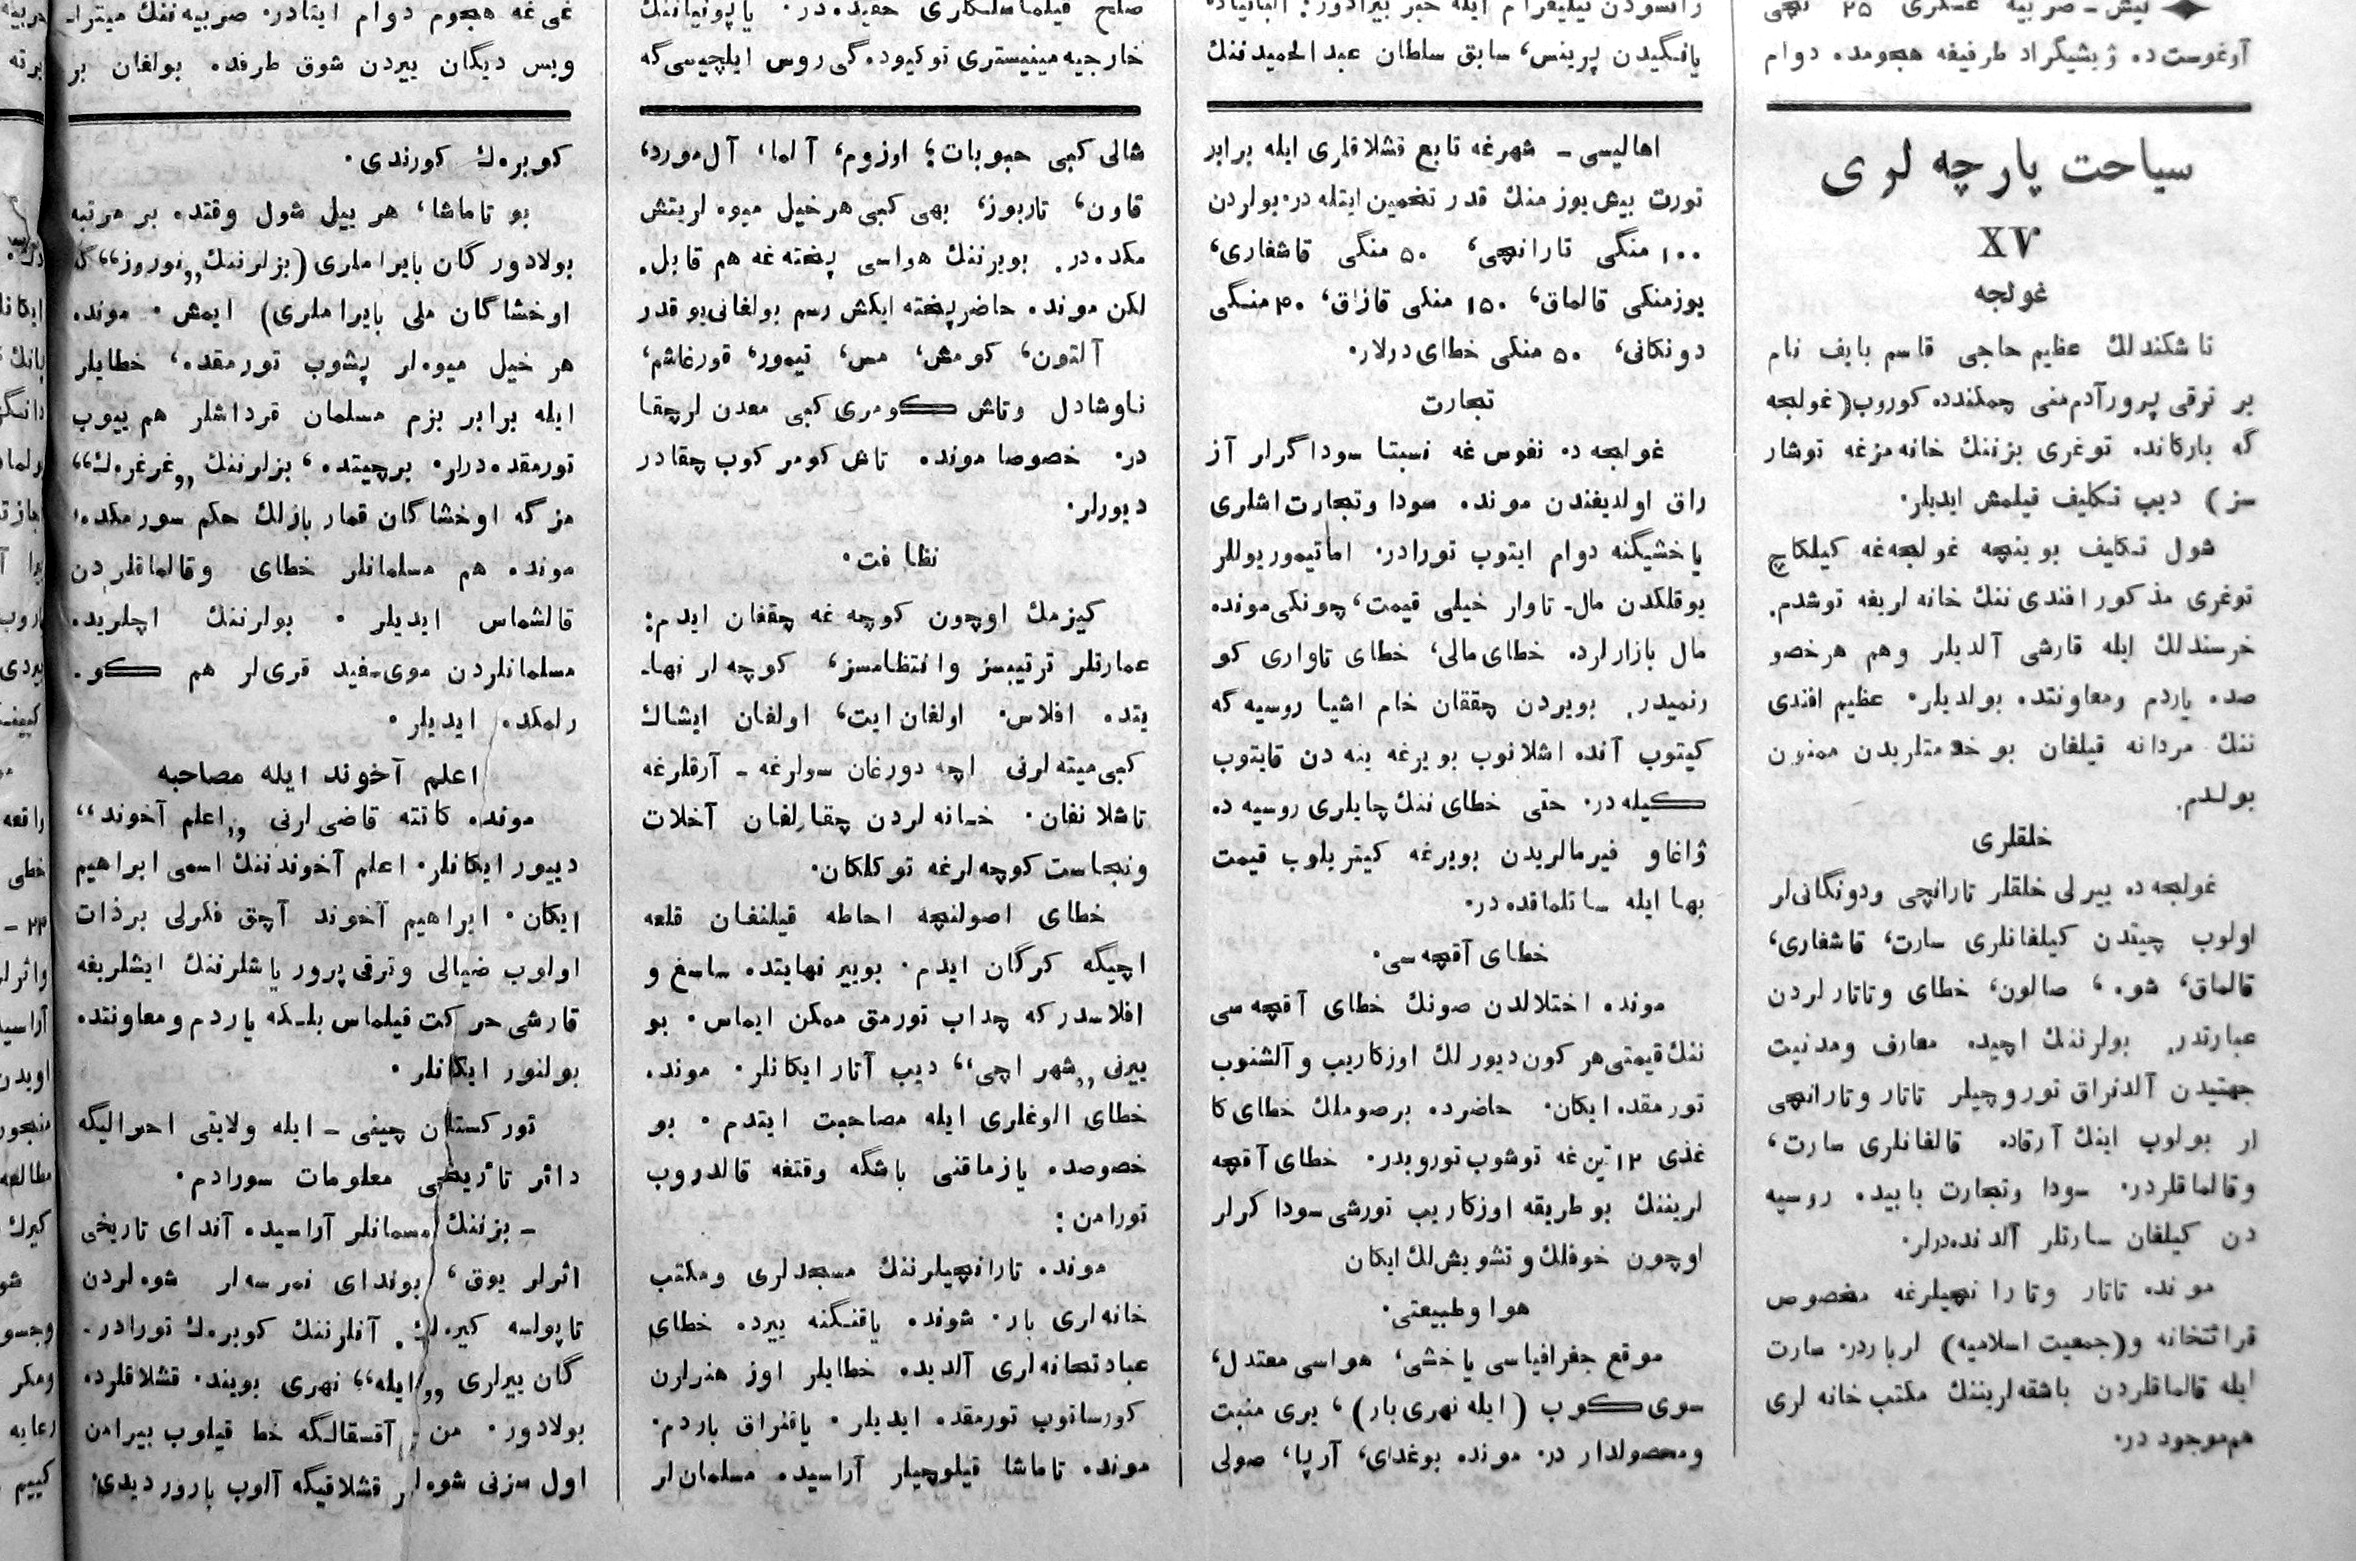 نیش ـ صربیه عسکری ۲۵ نچی
آوغوست ده ژیشیگراد طرفیغه هجومده دوام
سیاحت پارچه لری
XV
غولجه
تاشکندلك عظیم حاجی قاسم بایف نام
بر ترقی پرور آدم منی چمکندده کوروب (غولجه
گه بارکانده توغری بزننك خانه مزغه توشار
سز) دیب تکلیف قیلمش ایدیلر۰
شول تکلیف بوینچه غولجه غه کیلکاچ
توغری مذکور افندی ننك خانه لریغه توشدم.
خرسندلك ایله قارشی آلدیلر وهم هر خصو
صده یاردم ومعاونتده بولدیلر۰ عظیم افندی
ننك مردانه قیلغان بو خدمتلریدن ممنون
بولدم.
خلقلری
غولجه ده ییرلی خلقلر تارانچی ودونگانی لر
اولوب چیتدن کیلغانلری سارت، قاشغاری،
قالماق، شوه، صالون، خطای وتاتارلردن
عبارتدر. بولرننك اچیده معارف ومدنیت
جهتیدن آلدنراق توروچیلر تاتار وتارانچی
لر بولوب اینك آرقاده قالغانلری سارت،
وقالماقلردر۰ سودا وتجارت بابیده روسیه
دن کیلغان سارتلر آلدنده درلر۰
موندە تاتار وتارانچیلرغه مخصوص
قرائتخانه و(جمعیت اسلامیه) لر باردر۰ سارت
ایله قالماقلردن باشقه لریننك مکتب خانه لری
هم موجود در۰
رانسودن تیلیغرام ایله خبر بیرادور: البانیاده
یانگیدن پرینس، سابق سلطان عبدالحمیدننك
اهالیسی ـ شهرغه تابع قشلاقلری ایله برابر
تورت بیش یوز منك قدر تخمین ایتله در۰ بولردن
۱۰۰ منگی تارانچی، ۵۰ منگی قاشغاری،
یوزمنکی قالماق، ۱۵۰ منکی قازاق، ۴۰ منگی
دونکانی، ۵۰ منکی خطای درلار۰
تجارت
غولجه ده نفوس غه نسبتا سوداگرلر آز
راق اولدیغندن موندە سودا وتجارت اشلری
یاخشیگنه دوام ایتوب تورادر۰ اماتیمور یوللر
یوقلکدن مال۔ تاوار خیلی قیمت، چونکی موندە
مال بازارلرده خطای مالی، خطای تاواری کو
رنمیدر. بویردن چققان خام اشیا روسیه گه
کیتوب آنده اشلانوب بویرغه ینه دن قایتوب
کیله در۰ حتی خطای ننك چایلری روسیه ده
ۋاغاو فیرمالریدن بویرغه کیتریلوب قیمت
بها ایله ساتلماقده در۰
خطای آقچه سی۰
موندە اختلالدن صونك خطای آقچه سی
ننك قیمتی هر کون دیورلك اوزکاریب و آلشنوب
تورمقده ایکان۰ حاضرده بر صوملك خطای کا
غذی ۱۲ تین غه توشوب توروبدر۰ خطای آقچه
لریننك بو طریقه اوزکاریب تورشی سودا کرلر
اوچون خوفلك و تشویش لك ایکان
هوا وطبیعتی۰
موقع جغرافیاسی یاخشی، هواسی معتدل،
سوی کوب (ایله نهری بار)، یری منبت
ومحصولدار در۰ موندە بوغدای، آرپا، صولی
صلح قیلماسلقلری حقیده در۰ یاپونیاننك
خارجیه مینیستری توکیوده گی روس ایلچیسی گه
شالی کبی حبوبات؛ اوزوم، آلما، آل مورد،
قاون، تاربوز، بهی کبی هر خیل میوه لریتش
مکده در. بویرننك هواسی پخته غه هم قابل.
لکن موندە حاضر پخته ایکش رسم بولغانی یو قدر
آلتون، کومش، مس، تیمور، قورغاشم،
ناوشادل وتاش کومری کبی معدن لر چقا
در۰ خصوصا موندە تاش کومر کوب چقادر
دیورلر۰
نظافت۰
کیزمك اوچون کوچه غه چققان ایدم:
عمارتلر ترتیبسز وانتظامسز، کوچه لر نها۔
یتده افلاس۰ اولغان ایت، اولغان ایشاك
کبی میته لرنی اچه دورغان سولرغه ـ آرقلرغه
تاشلانغان۰ خانه لردن چقارلغان آخلات
ونجاست کوچه لرغه توکلکان۰
خطای اصولنچه احاطه قیلنغان قلعه
اچیگه کرگان ایدم۰ بوییر نهایتده ساسغ و
افلاسدر که چداب تورمق ممکن ایماس۰ بو
ییرنی „شهر اچی“ دیب آتار ایکانلر۰ موندە
خطای الوغلری ایله مصاحبت ایتدم۰ بو
خصوصده یازماقنی باشگه وقتغه قالدروب
تورامن:
موندە تارانچیلرننك مسجدلری ومکتب
خانه لری بار۰ شوندە یاقنگنه ییرده خطای
عبادتخانه لری آلدیده خطایلر اوز هنرلرن
کورساتوب تورمقده ایدیلر۰ یاقنراق باردم۰
موندە تاماشا قیلوچیلر آراسیده مسلمان لر
غی غه هجوم دوام ایتادر۰ صربیه ننك میترا۔
ویس دیگان ییردن شوق طرفده بولغان بر
کوبره‌ك کورندی۰
بو تاماشا، هر ییل شول وقتده بر مرتبه
بولادورگان بایراملری (بزلرننك „نوروز“گه
اوخشاگان ملی بایراملری) ایمش۰ موندە
هر خیل میوه لر پشوب تورمقده، خطایلر
ایله برابر بزم مسلمان قرداشلر هم ییوب
تورمقده درلر۰ برچیتده، بزلرننك „غرغره‌ك“
مزگه اوخشاگان قمار بازلك حکم سورمکده،
موندە هم مسلمانلر خطای وقالماقلردن
قالشماس ایدیلر۰ بولرننك اچلریده
مسلمانلردن موی۔فید قری لر هم کو۔
رلمکده ایدیلر۰
اعلم آخوند ایله مصاحبه
موندە کانته قاضی لرنی „اعلم آخوند“
دییور ایکانلر۰ اعلم آخوندننك اسمی ابراهیم
ایکان۰ ابراهیم آخوند آچق فکرلی برذات
اولوب ضیالی وترقی پرور یاشلرننك ایشلریغه
قارشی حرکت قیلماس بلکه یاردم ومعاونتده
بولنور ایکانلر۰
تورکستان چینی ـ ایله ولایتی احوالیگه
دائر تأریخی معلومات سورادم۰
ـ بزننك مسمانلر آراسیده آندای تاریخی
اثرلر یوق، بوندای نمرسه لر شوه لردن
تاپولسه کیره‌ك. آنلرننك کوبره‌ك تورادر۔
گان ییرلری „ایله“ نهری بویند۰ قشلاقلرده
بولادور۰ من آقسقالگه خط قیلوب بیرامن
اول سزنی شوه لر قشلاقیگه آلوب بارور دیدی